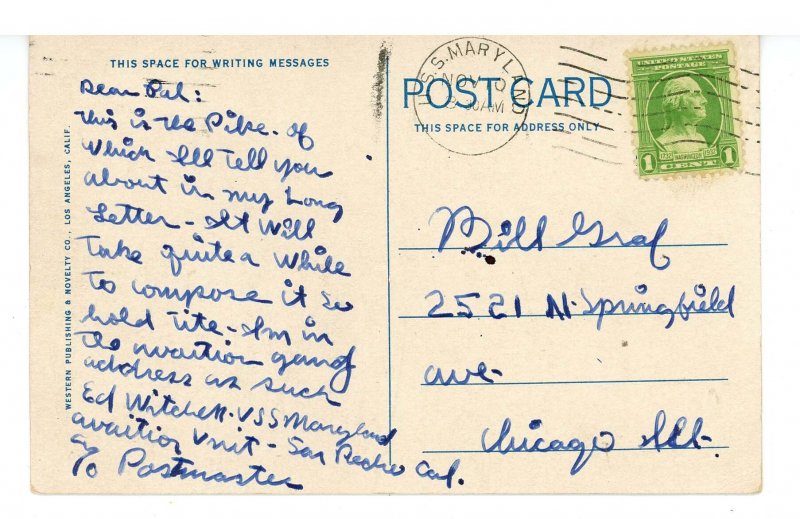 THIS SPACE FOR WRITING MESSAGES
Dear Pal:
this is the Pike. of
which Ill tell you
about in my Long
Letter - It will
Take quite a while
To compose it so
hold tite - Im in
the avaition gang
address as such
Ed Witchell - USS Maryland
avaition Unit - San Pedro Cal.
c/o Postmaster
WESTERN PUBLISHING & NOVELTY CO., LOS ANGELES, CALIF.
U.S.S. MARYLAND
NOV
AM
POST CARD
THIS SPACE FOR ADDRESS ONLY
UNITED STATES
POSTAGE
1732 WASHINGTON 1932
1 CENT 1
Bill Graf
2521 N. Springfield
ave-
Chicago Ill-